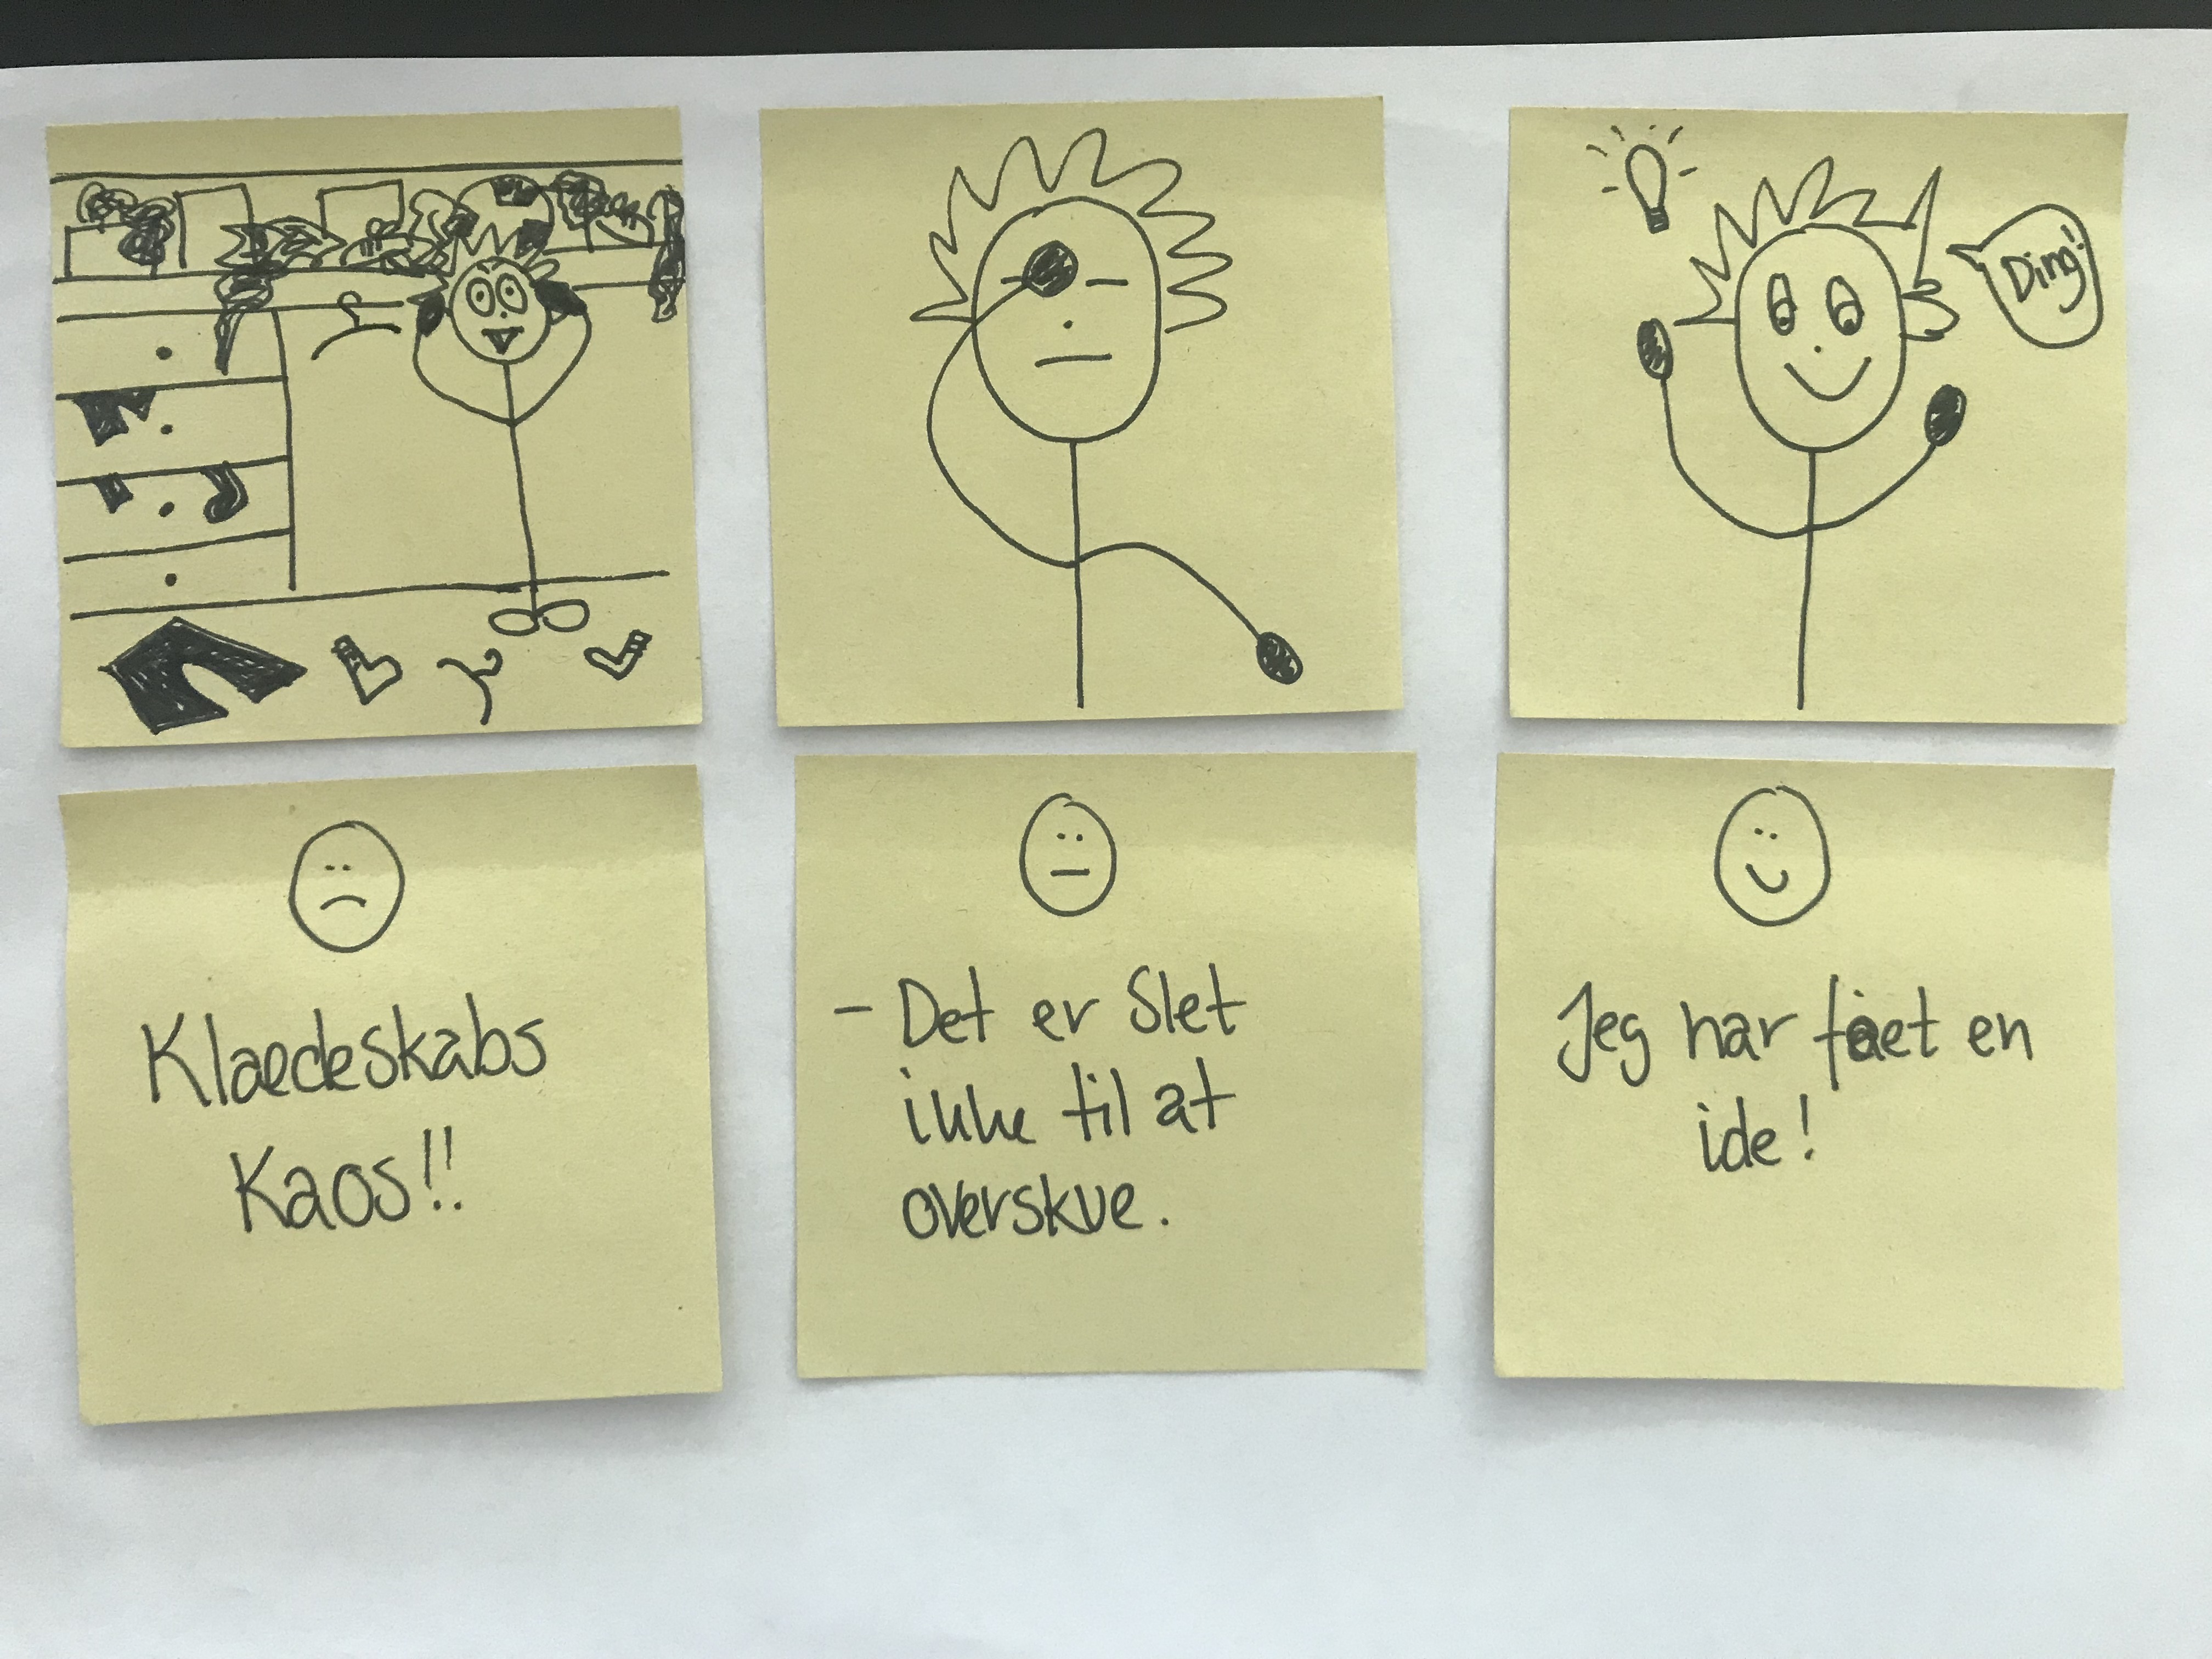 Ding!
Klaedeskabs
Kaos!!
- Det er Slet
ikke til at
overskue.
Jeg har fået en
ide!